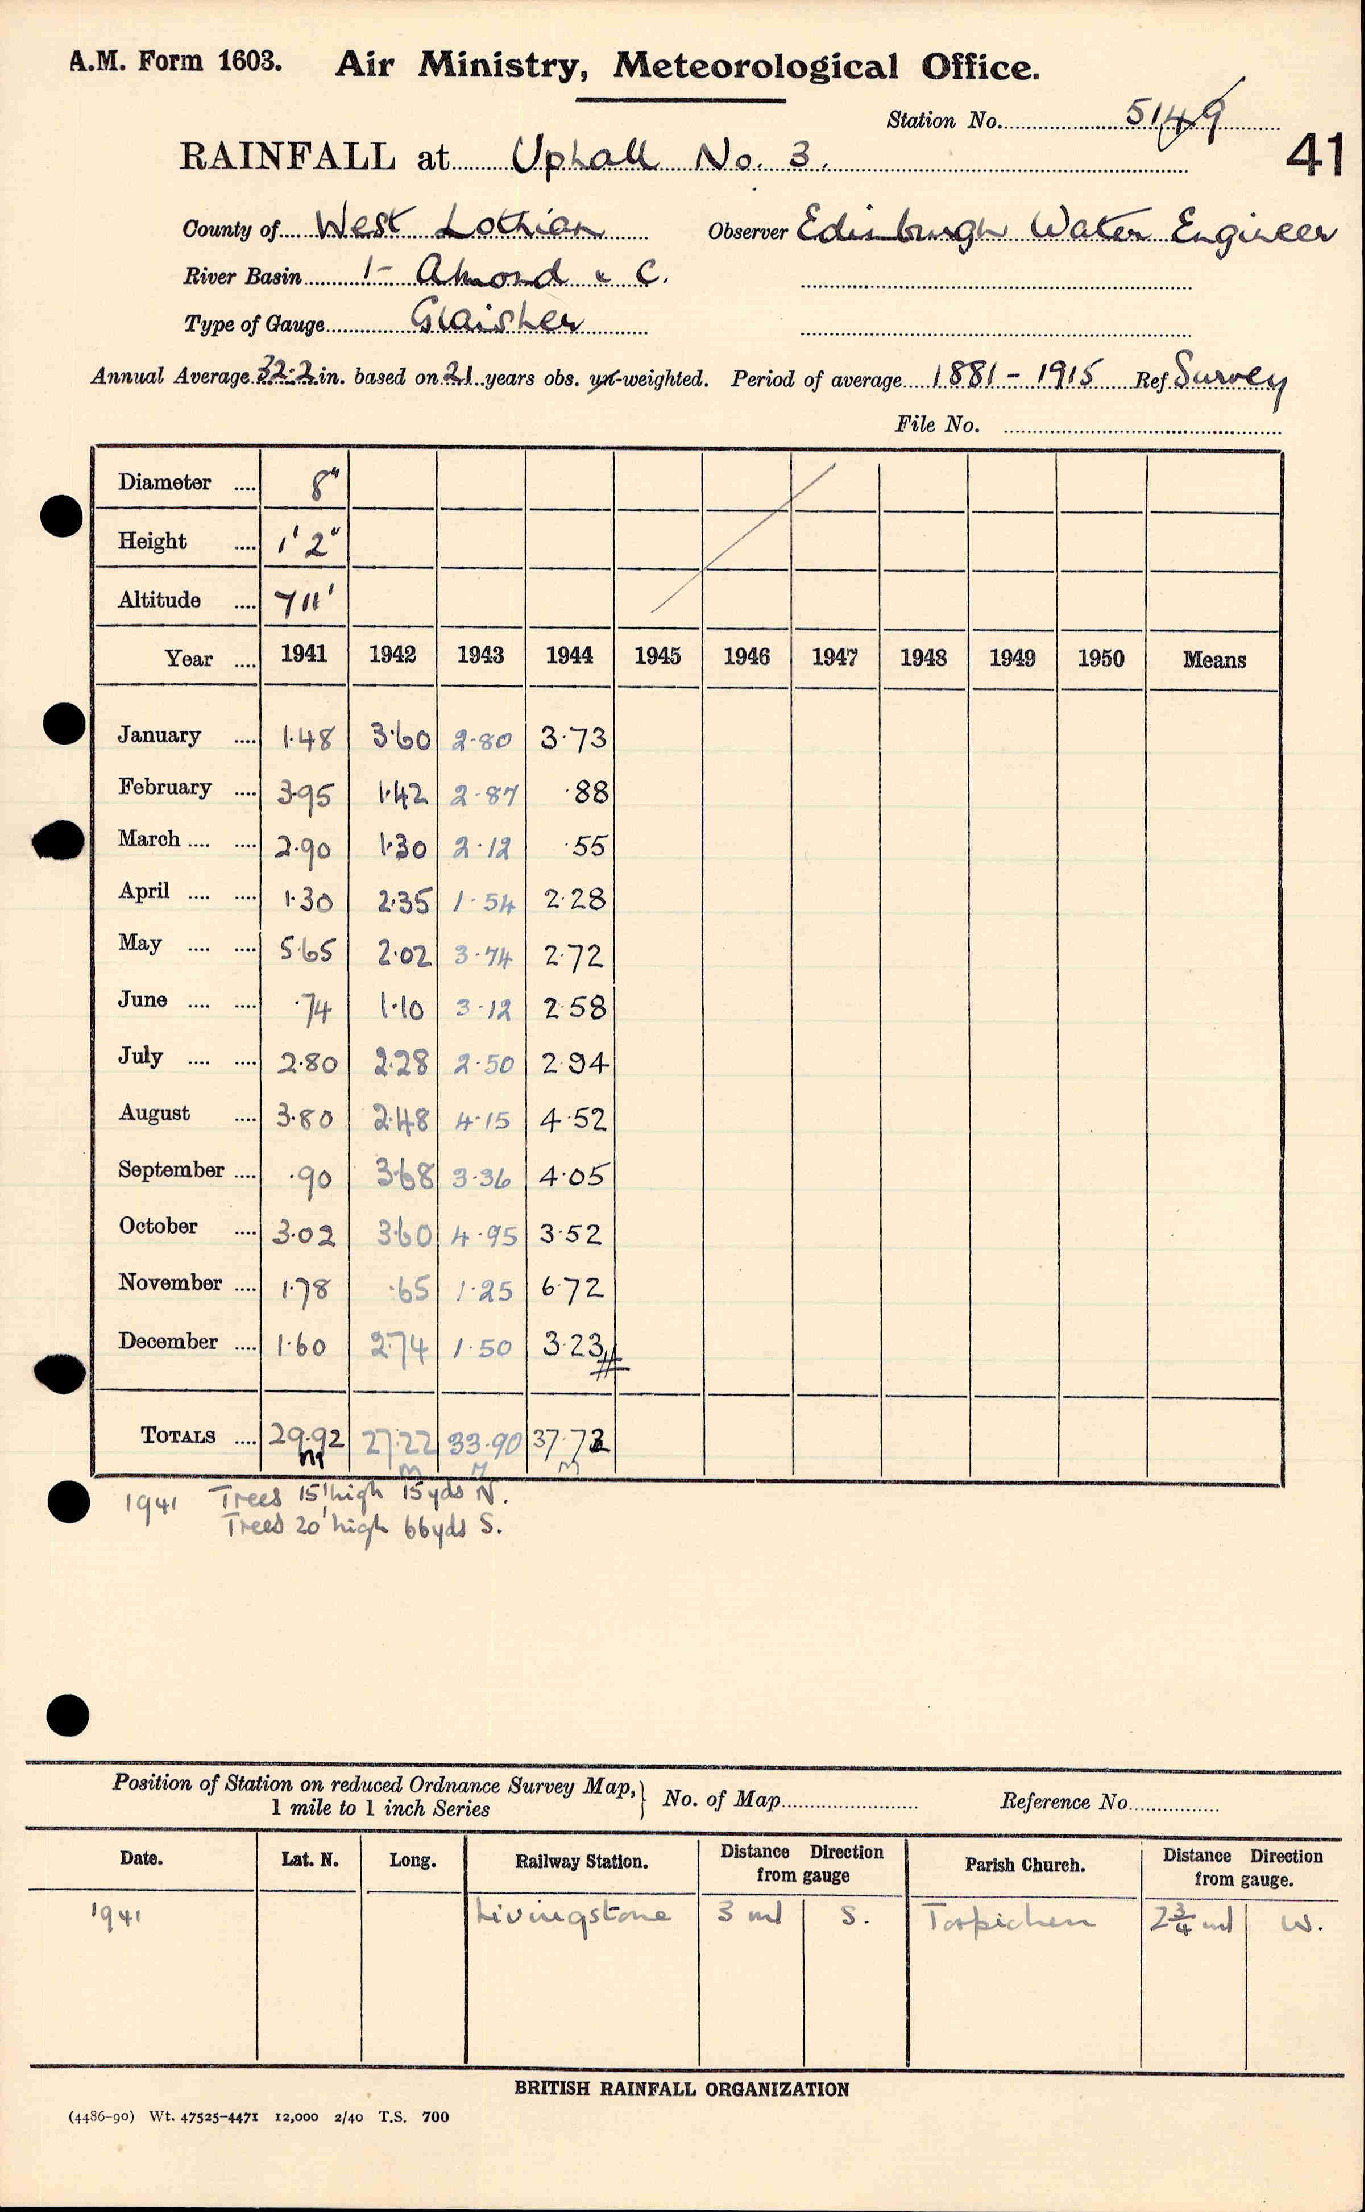 A.M. Form 1603. Air Ministry, Meteorological Office.
Station No. 5149
41
RAINFALL at Uphall No. 3.
County of West Lothian Observer Edinburgh Water Engineer
River Basin 1- Almond & C.
Type of Gauge Glaisher
Annual Average 32.2 in. based on 21 years obs. un-weighted. Period of average 1881 - 1915 Ref Survey
File No.
Diameter .... 8"
Height .... 1' 2"
Altitude .... 711'
Year .... 1941 1942 1943 1944 1945 1946 1947 1948 1949 1950 Means
January .... 1.48 3.60 2.80 3.73
February .... 3.95 1.42 2.87 .88
March .... .... 2.90 1.30 2.12 .55
April .... .... 1.30 2.35 1.54 2.28
May .... .... 5.65 2.02 3.74 2.72
June .... .... .74 1.10 3.12 2.58
July .... .... 2.80 2.28 2.50 2.94
August .... 3.80 2.48 4.15 4.52
September .... .90 3.68 3.36 4.05
October .... 3.02 3.60 4.95 3.52
November .... 1.78 .65 1.25 6.72
December .... 1.60 2.74 1.50 3.23
TOTALS .... 29.92 27.22 33.90 37.72
m m M m
1941 Trees 15' high 15 yds N.
Trees 20' high 66 yds S.
Position of Station on reduced Ordnance Survey Map, } No. of Map Reference No.
1 mile to 1 inch Series
Date. Lat. N. Long. Railway Station. Distance Direction from gauge Parish Church. Distance Direction from gauge.
1941 Livingstone 3 ml S. Torpichen 2 3/4 ml W.
BRITISH RAINFALL ORGANIZATION
(4486-90) Wt. 47525-4471 12,000 2/40 T.S. 700